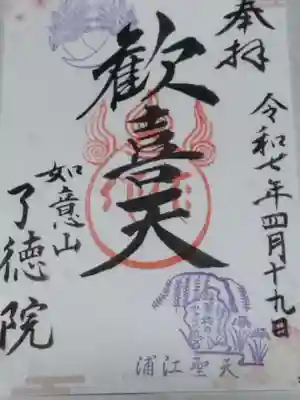 奉拝
令和七年四月十九日
歓喜天
如意山
了徳院
浦江聖天